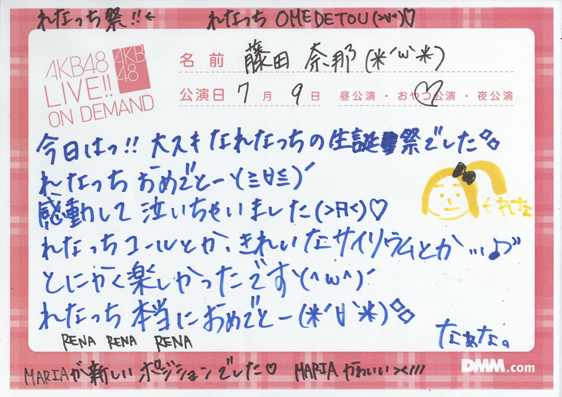 れなっち祭!!← れなっち OMEDETOU(>v<)♡
AKB48
LIVE!!
ON DEMAND
AKB
48
名前 藤田 奈那(*´ω`*)
公演日 7月9日 昼公演・おやつ公演・夜公演
今日はっ!! 大スキなれなっちの生誕祭でした
れなっち おめでとーヽ(≧∀≦)ノ
感動して泣いちゃいました(>д<)♡
←れな
れなっちコールとか、きれいなサイリウムとか…♪
とにかく楽しかったですヽ(^ω^)ノ
れなっち 本当におめでとー(*´∀`*)
RENA RENA RENA
なぁな。
MARIAが新しいポジションでした♡ MARIAかわいい><///
DMM.com